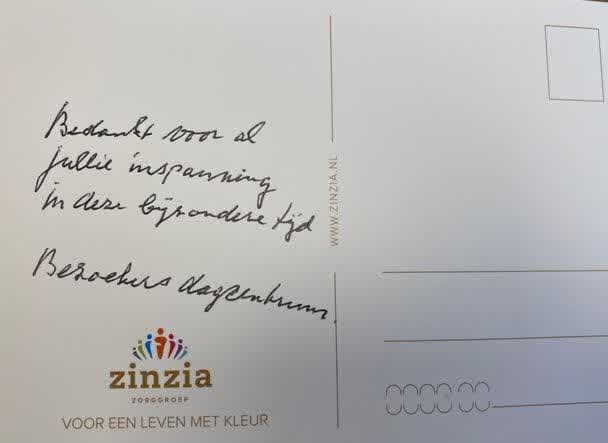 Bedankt voor al
jullie inspanning
in deze bijzondere tijd
Bezoekers dagcentrum.
WWW.ZINZIA.NL
zinzia
ZORGGROEP
VOOR EEN LEVEN MET KLEUR